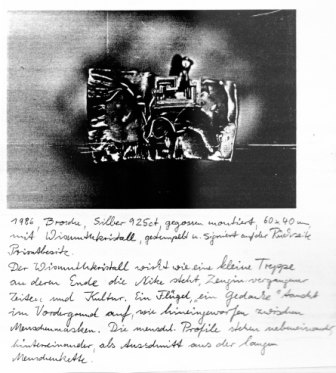 1986, Brosche, Silber 925ct, gegossen montiert, 60x40mm
mit Wismuthkristall, gestempelt u. signiert auf der Rückseite
Privatbesitz.
Der Wismuthkristall wirkt wie eine kleine Treppe
an deren Ende die Nike steht, Zeugin vergangener
Zeiten und Kultur. Ein Flügel, ein Gedanke taucht
im Vordergrund auf, wie hineingeworfen zwischen
Menschenmasken. Die menschl. Profile stehen nebeneinander,
hintereinander, als Ausschnitt aus der langen
Menschenkette.